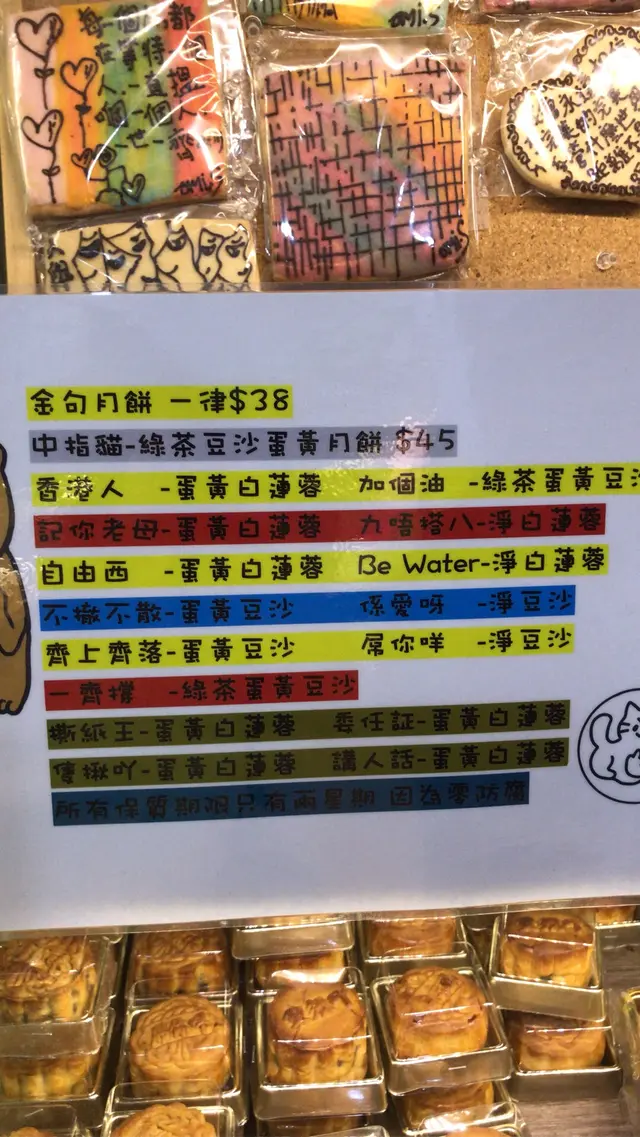 每個人都
在等待
人一直把
喺一個人
emi.S
金句月餅 一律$38
中指貓-綠茶豆沙蛋黃月餅 $45
香港人 -蛋黃白蓮蓉 加個油 -綠茶蛋黃豆沙
記你老母-蛋黃白蓮蓉 九唔搭八-淨白蓮蓉
自由西 -蛋黃白蓮蓉 Be Water-淨白蓮蓉
不撤不散-蛋黃豆沙 係愛呀 -淨豆沙
齊上齊落-蛋黃豆沙 屌你咩 -淨豆沙
一齊撐 -綠茶蛋黃豆沙
撕紙王-蛋黃白蓮蓉 委任証-蛋黃白蓮蓉
隻揪吖-蛋黃白蓮蓉 講人話-蛋黃白蓮蓉
所有保質期限只有兩星期 因為零防腐